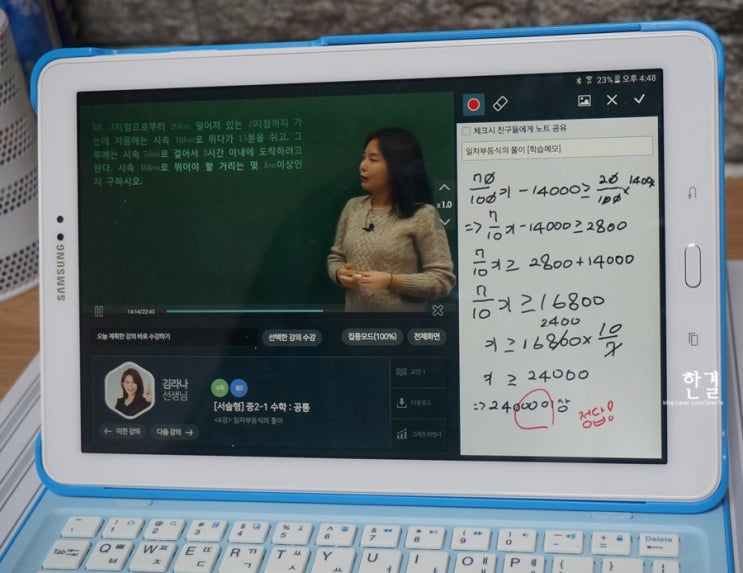 23% 오후 4:48
10. A지점으로부터 20km 떨어져 있는 B지점까지 가
는데 처음에는 시속 10km로 뛰다가 15분을 쉬고, 그
후에는 시속 5km로 걸어서 3시간 이내에 도착하려고
한다. 시속 10km로 뛰어야 할 거리는 몇 km이상인
지 구하시오.
x1.0
14:14/22:43
오늘 계획한 강의 바로 수강하기
선택한 강의 수강
집중모드(100%)
전체화면
김라나
선생님
수학
중2
[서술형] 중2-1 수학 : 공통
<4강> 일차부등식의 풀이
← 이전 강의
다음 강의 →
교안 1
다운로드
그래프처방사
체크시 친구들에게 노트 공유
일차부등식의 풀이 [학습메모]
70/100 x - 14000 ≥ 20/100 × 14000
⇒ 7/10 x - 14000 ≥ 2800
7/10 x ≥ 2800 + 14000
7/10 x ≥ 16800
2400
x ≥ 16800 × 10/7
x ≥ 24000
⇒ 24000이상
정답!
한결
SAMSUNG
Tab
Q ㅃ
W ㅉ
E ㄸ
R ㄲ
T ㅆ
Y
U
I
O
P
Delete